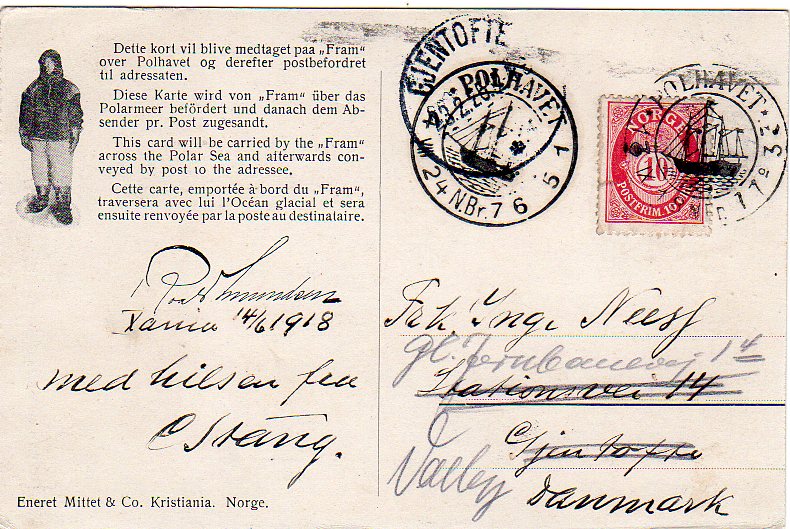 Dette kort vil blive medtaget paa „Fram"
over Polhavet og derefter postbefordret
til adressaten.
Diese Karte wird von „Fram" über das
Polarmeer befördert und danach dem Ab-
sender pr. Post zugesandt.
This card will be carried by the „Fram"
across the Polar Sea and afterwards con-
veyed by post to the adressee.
Cette carte, emportée à bord du „Fram",
traversera avec lui l'Océan glacial et sera
ensuite renvoyée par la poste au destinataire.
Roald Amundsen
14/6 1918
med hilsen fra
C Stang.
Eneret Mittet & Co. Kristiania. Norge.
GJENTOFTE
POLHAVET
24 N.Br. 76 51
POLHAVET
NORGE
10
POSTFRIM. 10
Frk. Inge Neess
gl. Jernbanevej 14
Stationsvei 14
Gjentofte
Valby
Danmark